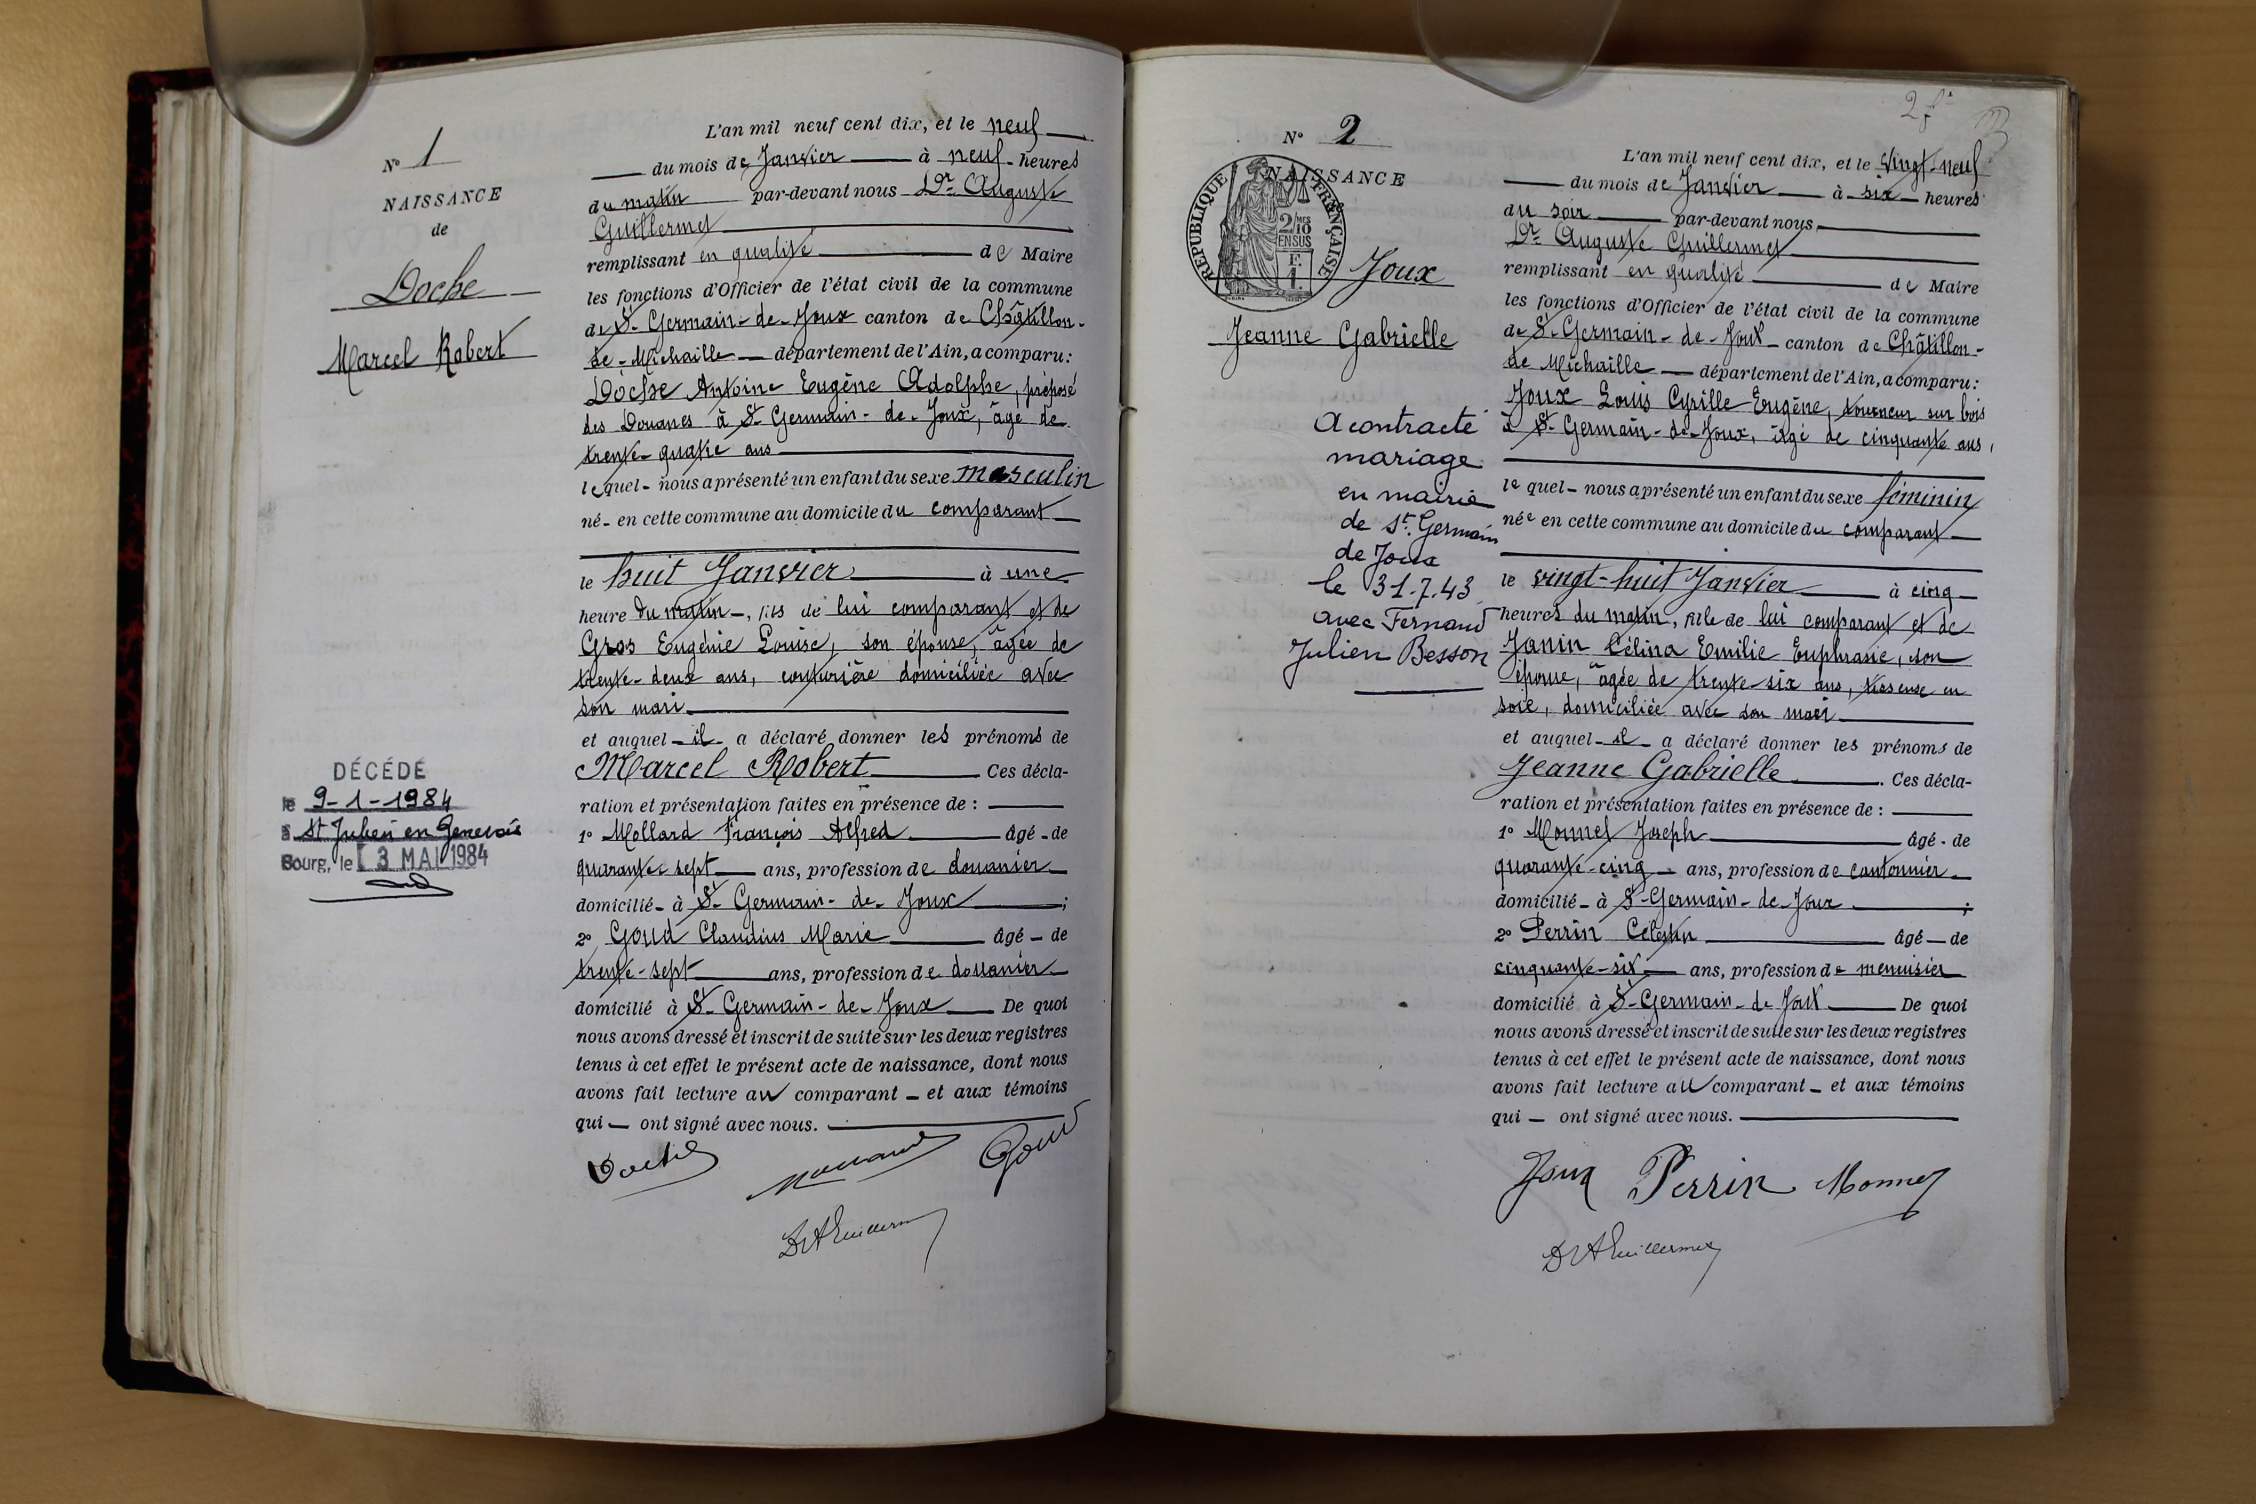 N° 1
NAISSANCE
de
Doche
Marcel Robert
DÉCÉDÉ
le 9-1-1984
à St Julien en Genevois
Bourg, le 3 MAI 1984
L'an mil neuf cent dix, et le neuf
du mois de Janvier à neuf heures
du matin par-devant nous Dr Auguste
Guillermet
remplissant en qualité de Maire
les fonctions d'Officier de l'état civil de la commune
de St Germain-de-Joux canton de Châtillon-
de-Michaille département de l'Ain, a comparu:
Doche Antoine Eugène Adolphe, préposé
des Douanes à St Germain-de-Joux, âgé de
trente-quatre ans
lequel nous a présenté un enfant du sexe masculin
né en cette commune au domicile du comparant
le huit Janvier à une
heure du matin, fils de lui comparant et de
Gros Eugénie Louise, son épouse, âgée de
trente-deux ans, couturière domiciliée avec
son mari
et auquel il a déclaré donner les prénoms de
Marcel Robert Ces décla-
ration et présentation faites en présence de :
1° Mollard François Alfred âgé de
quarante sept ans, profession de douanier
domicilié à St Germain-de-Joux ;
2° Goud Claudius Marie âgé de
trente-sept ans, profession de douanier
domicilié à St Germain-de-Joux De quoi
nous avons dressé et inscrit de suite sur les deux registres
tenus à cet effet le présent acte de naissance, dont nous
avons fait lecture au comparant et aux témoins
qui ont signé avec nous.
Doche Mollard Goud
Dr A Guillermet
2
N° 2
NAISSANCE
REPUBLIQUE FRANÇAISE
2/10
EN SUS
F.
1.
Joux
Jeanne Gabrielle
A contracté
mariage
en mairie
de St. Germain
de Joux
le 31.7.43
avec Fernand
Julien Besson
L'an mil neuf cent dix, et le vingt-neuf
du mois de Janvier à six heures
du soir par-devant nous
Dr Auguste Guillermet
remplissant en qualité de Maire
les fonctions d'Officier de l'état civil de la commune
de St Germain-de-Joux canton de Châtillon-
de Michaille département de l'Ain, a comparu:
Joux Louis Cyrille Eugène, tourneur sur bois
à St Germain-de-Joux, âgé de cinquante ans,
lequel nous a présenté un enfant du sexe féminin
née en cette commune au domicile du comparant
le vingt-huit Janvier à cinq
heures du matin, fille de lui comparant et de
Janin Célina Emilie Euphrasie, son
épouse, âgée de trente-six ans, tisseuse en
soie, domiciliée avec son mari
et auquel il a déclaré donner les prénoms de
Jeanne Gabrielle. Ces décla-
ration et présentation faites en présence de :
1° Monnet Joseph âgé de
quarante-cinq ans, profession de cantonnier
domicilié à St Germain-de-Joux ;
2° Perrin Célestin âgé de
cinquante-six ans, profession de menuisier
domicilié à St Germain-de-Joux De quoi
nous avons dressé et inscrit de suite sur les deux registres
tenus à cet effet le présent acte de naissance, dont nous
avons fait lecture au comparant et aux témoins
qui ont signé avec nous.
Joux Perrin Monnet
Dr A Guillermet